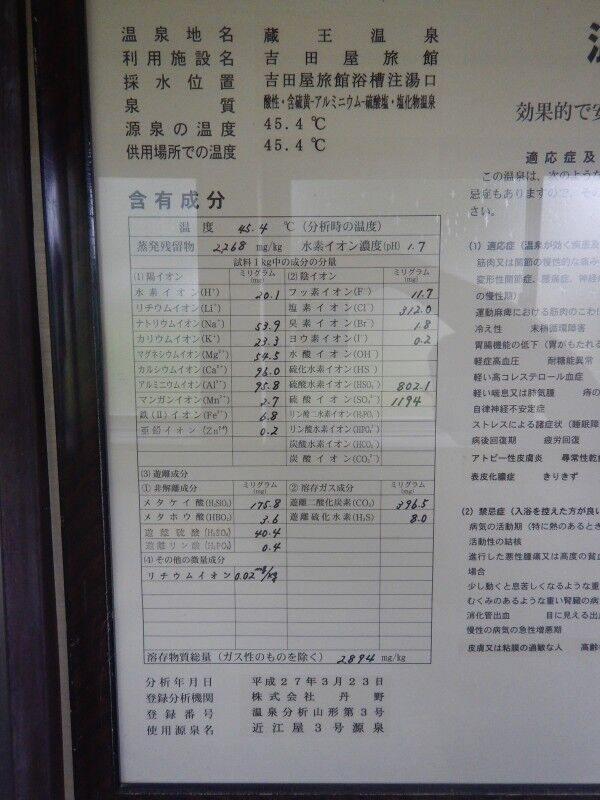 温泉地名 蔵王温泉
利用施設名 吉田屋旅館
採水位置 吉田屋旅館浴槽注湯口
泉質 酸性・含硫黄-アルミニウム-硫酸塩・塩化物温泉
源泉の温度 45.4℃
供用場所での温度 45.4℃
効果的で安
適応症及
この温泉は、次のような
忌症もありますので、その
さい。
含有成分
温度 45.4 ℃(分析時の温度)
蒸発残留物 2268 mg/kg 水素イオン濃度(pH) 1.7
試料1kg中の成分の分量
(1)陽イオン ミリグラム(mg) (2)陰イオン ミリグラム(mg)
水素イオン(H⁺) 20.1 フッ素イオン(F⁻) 11.7
リチウムイオン(Li⁺) 塩素イオン(Cl⁻) 312.0
ナトリウムイオン(Na⁺) 53.9 臭素イオン(Br⁻) 1.8
カリウムイオン(K⁺) 23.3 ヨウ素イオン(I⁻) 0.2
マグネシウムイオン(Mg²⁺) 54.5 水酸イオン(OH⁻)
カルシウムイオン(Ca²⁺) 96.0 硫化水素イオン(HS⁻)
アルミニウムイオン(Al³⁺) 95.8 硫酸水素イオン(HSO₄⁻) 802.1
マンガンイオン(Mn²⁺) 2.7 硫酸イオン(SO₄²⁻) 1194
鉄(II)イオン(Fe²⁺) 6.8 リン酸二水素イオン(H₂PO₄⁻)
亜鉛イオン(Zn²⁺) 0.2 リン酸水素イオン(HPO₄²⁻)
炭酸水素イオン(HCO₃⁻)
炭酸イオン(CO₃²⁻)
(3)遊離成分
①非解離成分 ミリグラム(mg) ②溶存ガス成分 ミリグラム(mg)
メタケイ酸(H₂SiO₃) 175.8 遊離二酸化炭素(CO₂) 396.5
メタホウ酸(HBO₂) 3.6 遊離硫化水素(H₂S) 8.0
遊離硫酸(H₂SO₄) 40.4
遊離リン酸(H₃PO₄) 0.4
(4)その他の微量成分
リチウムイオン 0.02mg/kg
溶存物質総量(ガス性のものを除く) 2894 mg/kg
分析年月日 平成27年3月23日
登録分析機関 株式会社丹野
登録番号 温泉分析山形第3号
使用源泉名 近江屋3号源泉
(1)適応症(温泉が効く疾患及
筋肉又は関節の慢性的な痛み
変形性関節症、腰痛症、神経
の慢性期)
運動麻痺における筋肉のこわ
冷え性 末梢循環障害
胃腸機能の低下(胃がもたれる
軽症高血圧 耐糖能異常
軽い高コレステロール血症
軽い喘息又は肺気腫 痔の
自律神経不安定症
ストレスによる諸症状(睡眠障
病後回復期 疲労回復
アトピー性皮膚炎 尋常性乾
表皮化膿症 きりきず
(2)禁忌症(入浴を控えた方が良い
病気の活動期(特に熱のあるとき
活動性の結核
進行した悪性腫瘍又は高度の貧血
場合
少し動くと息苦しくなるような重
むくみのあるような重い腎臓の病
消化管出血 目に見える出
慢性の病気の急性増悪期
皮膚又は粘膜の過敏な人 高齢